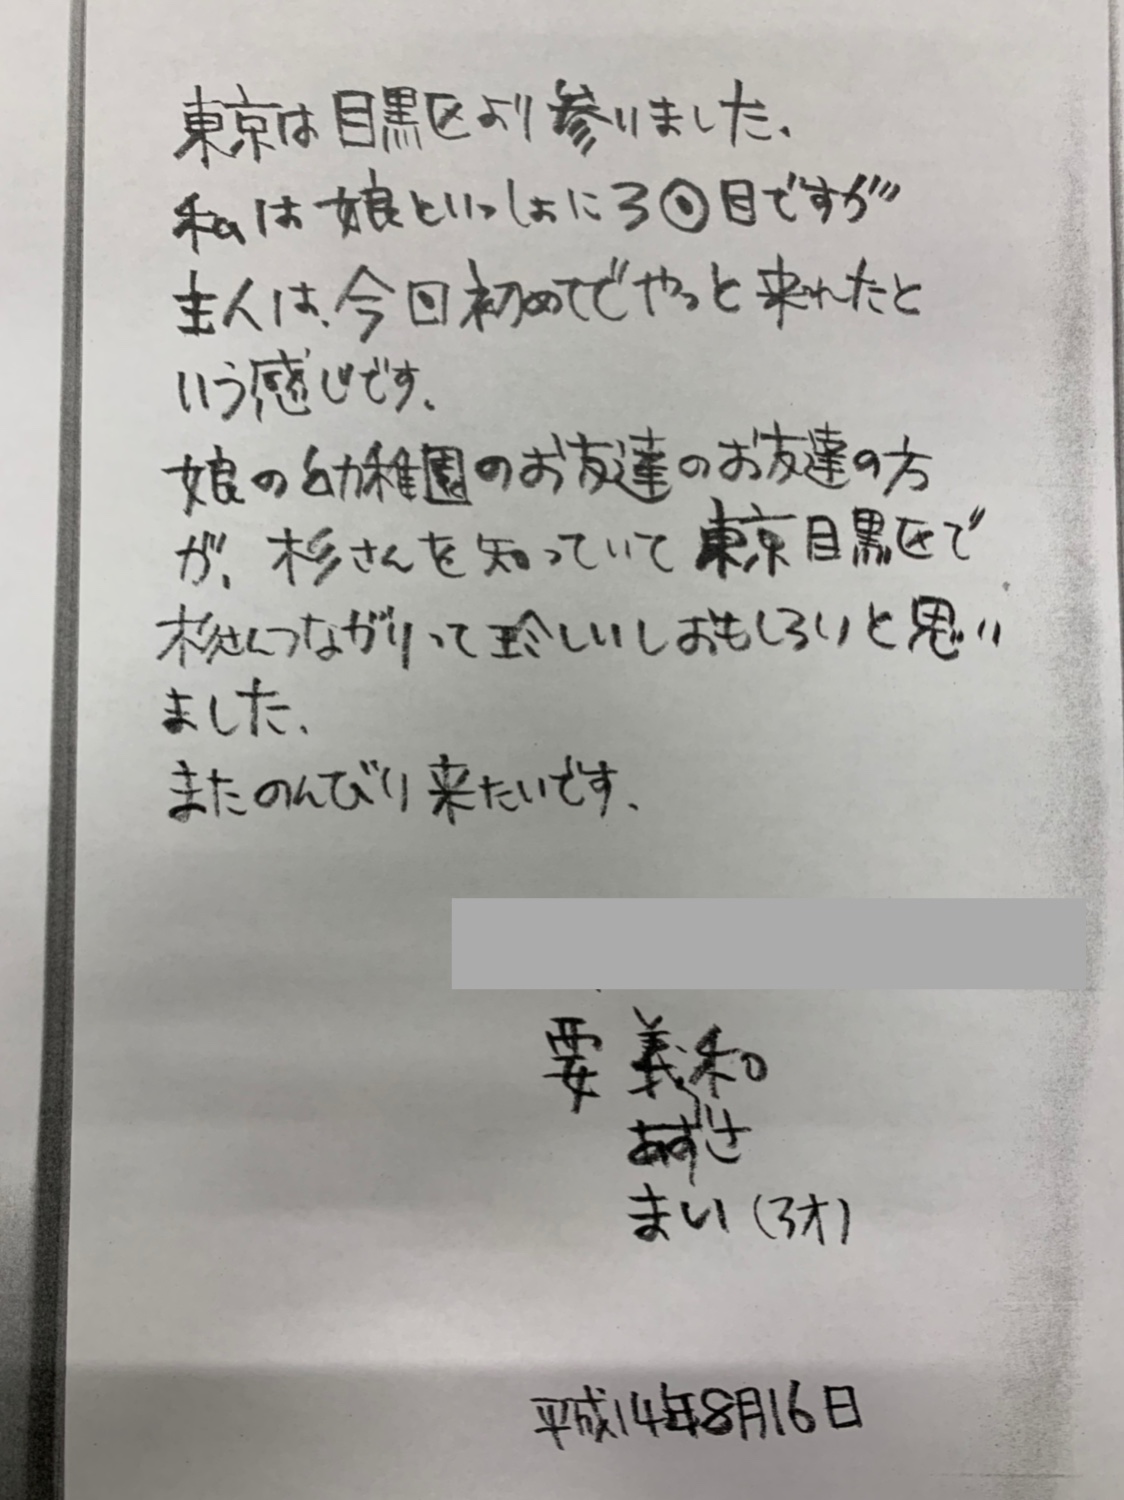 東京は目黒区より参りました、
私は娘といっしょに3回目ですが
主人は、今回初めてでやっと来れたと
いう感じです、
娘の幼稚園のお友達のお友達の方
が、杉さんを知っていて東京目黒区で
杉さんつながりって珍しいしおもしろいと思い
ました、
またのんびり来たいです、
要 義和
あずさ
まい(3才)
平成14年8月16日